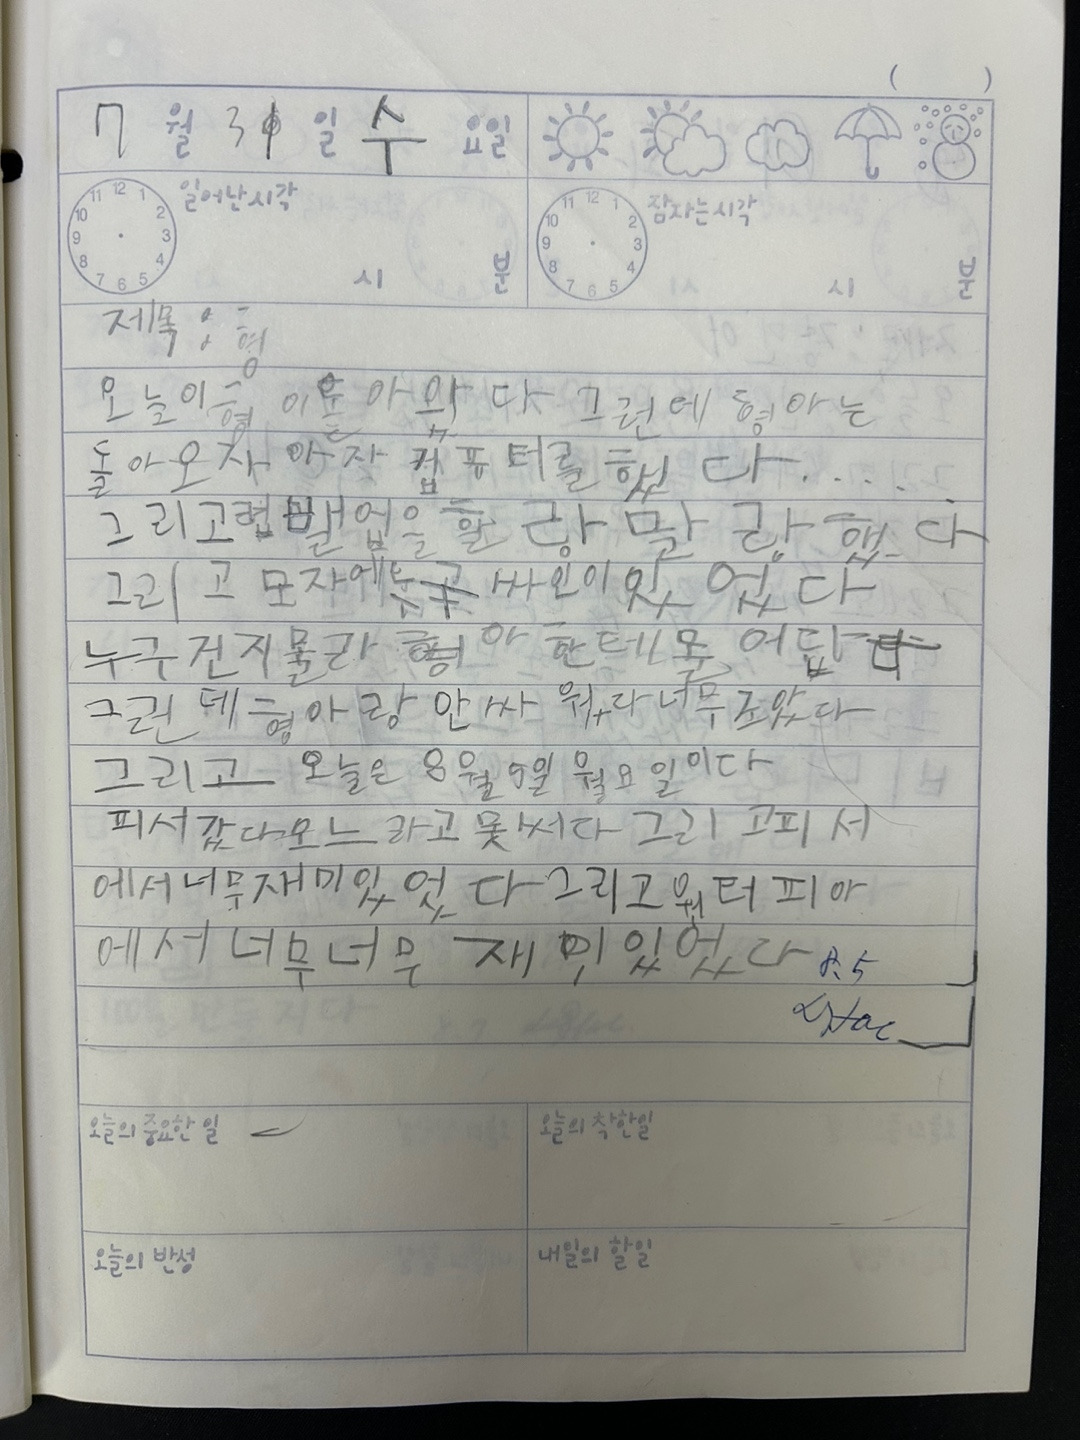 ( )
7 월 31 일 수 요일
일어난시각 잠자는시각
시 분 시 분
제목 : 형
오늘이형 이 아왔다 그런에 형아는
돌아오자 아자 컴퓨터를 했다.....
그리고렙벨업을 할랑말랑했다
그리고 모자에 싸인이있었다
누구건지물라 형아한테 물어답다
그런데형아랑 안싸웠다너무조았다
그리고 오늘은 8월5일 월요일이다
피서갔다오느라고못써다 그리고피서
에서너무재미있었다그리고워터피아
에서너무너무 재밌있었다 8.5
오늘의 중요한 일 오늘의 착한일
오늘의 반성 내일의 할일